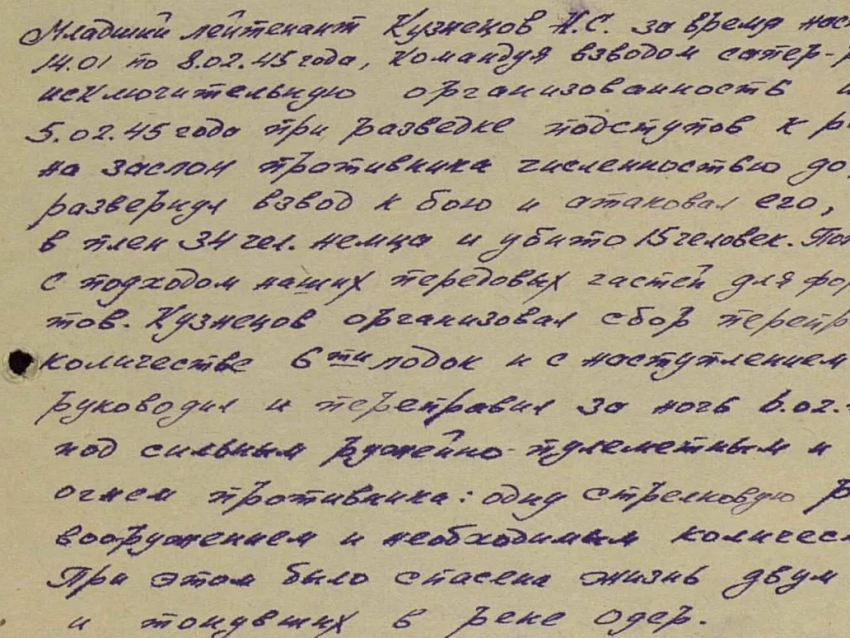 Младший лейтенант Кузнецов Н.С. за время нас
14.01 по 8.02.45 года, командуя взводом сапер-р
исключительную организованность и
5.02.45 года при разведке подступов к р
на заслон противника численностью до
развернул взвод к бою и атаковал его,
в плен 34 чел. немца и убито 15 человек. Пос
с подходом наших передовых частей для фор
тов. Кузнецов организовал сбор перепр
количестве 6ти лодок и с наступлением
руководил и переправил за ночь 6.02.
под сильным ружейно-пулеметным и
огнем противника: одну стрелковую р
вооружением и необходимым количес
При этом было спасена жизнь двум
и тонувших в реке Одер.